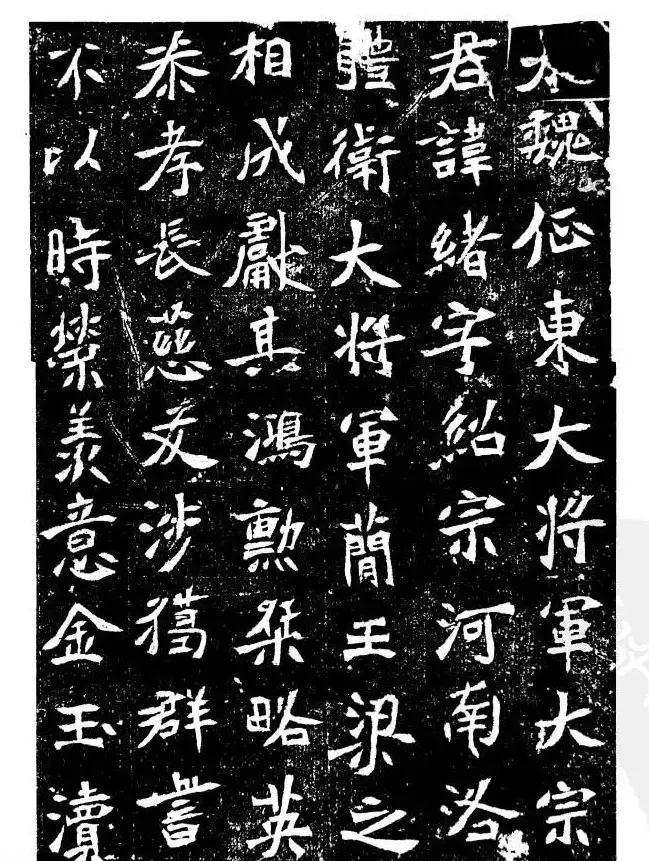 大魏征東大将軍大宗
君諱緒字紹宗河南洛
體衛大将軍簡王梁之
相成獻其鴻勲桀略英
恭孝長慈友涉獵群書
不以時榮羨意金玉瀆